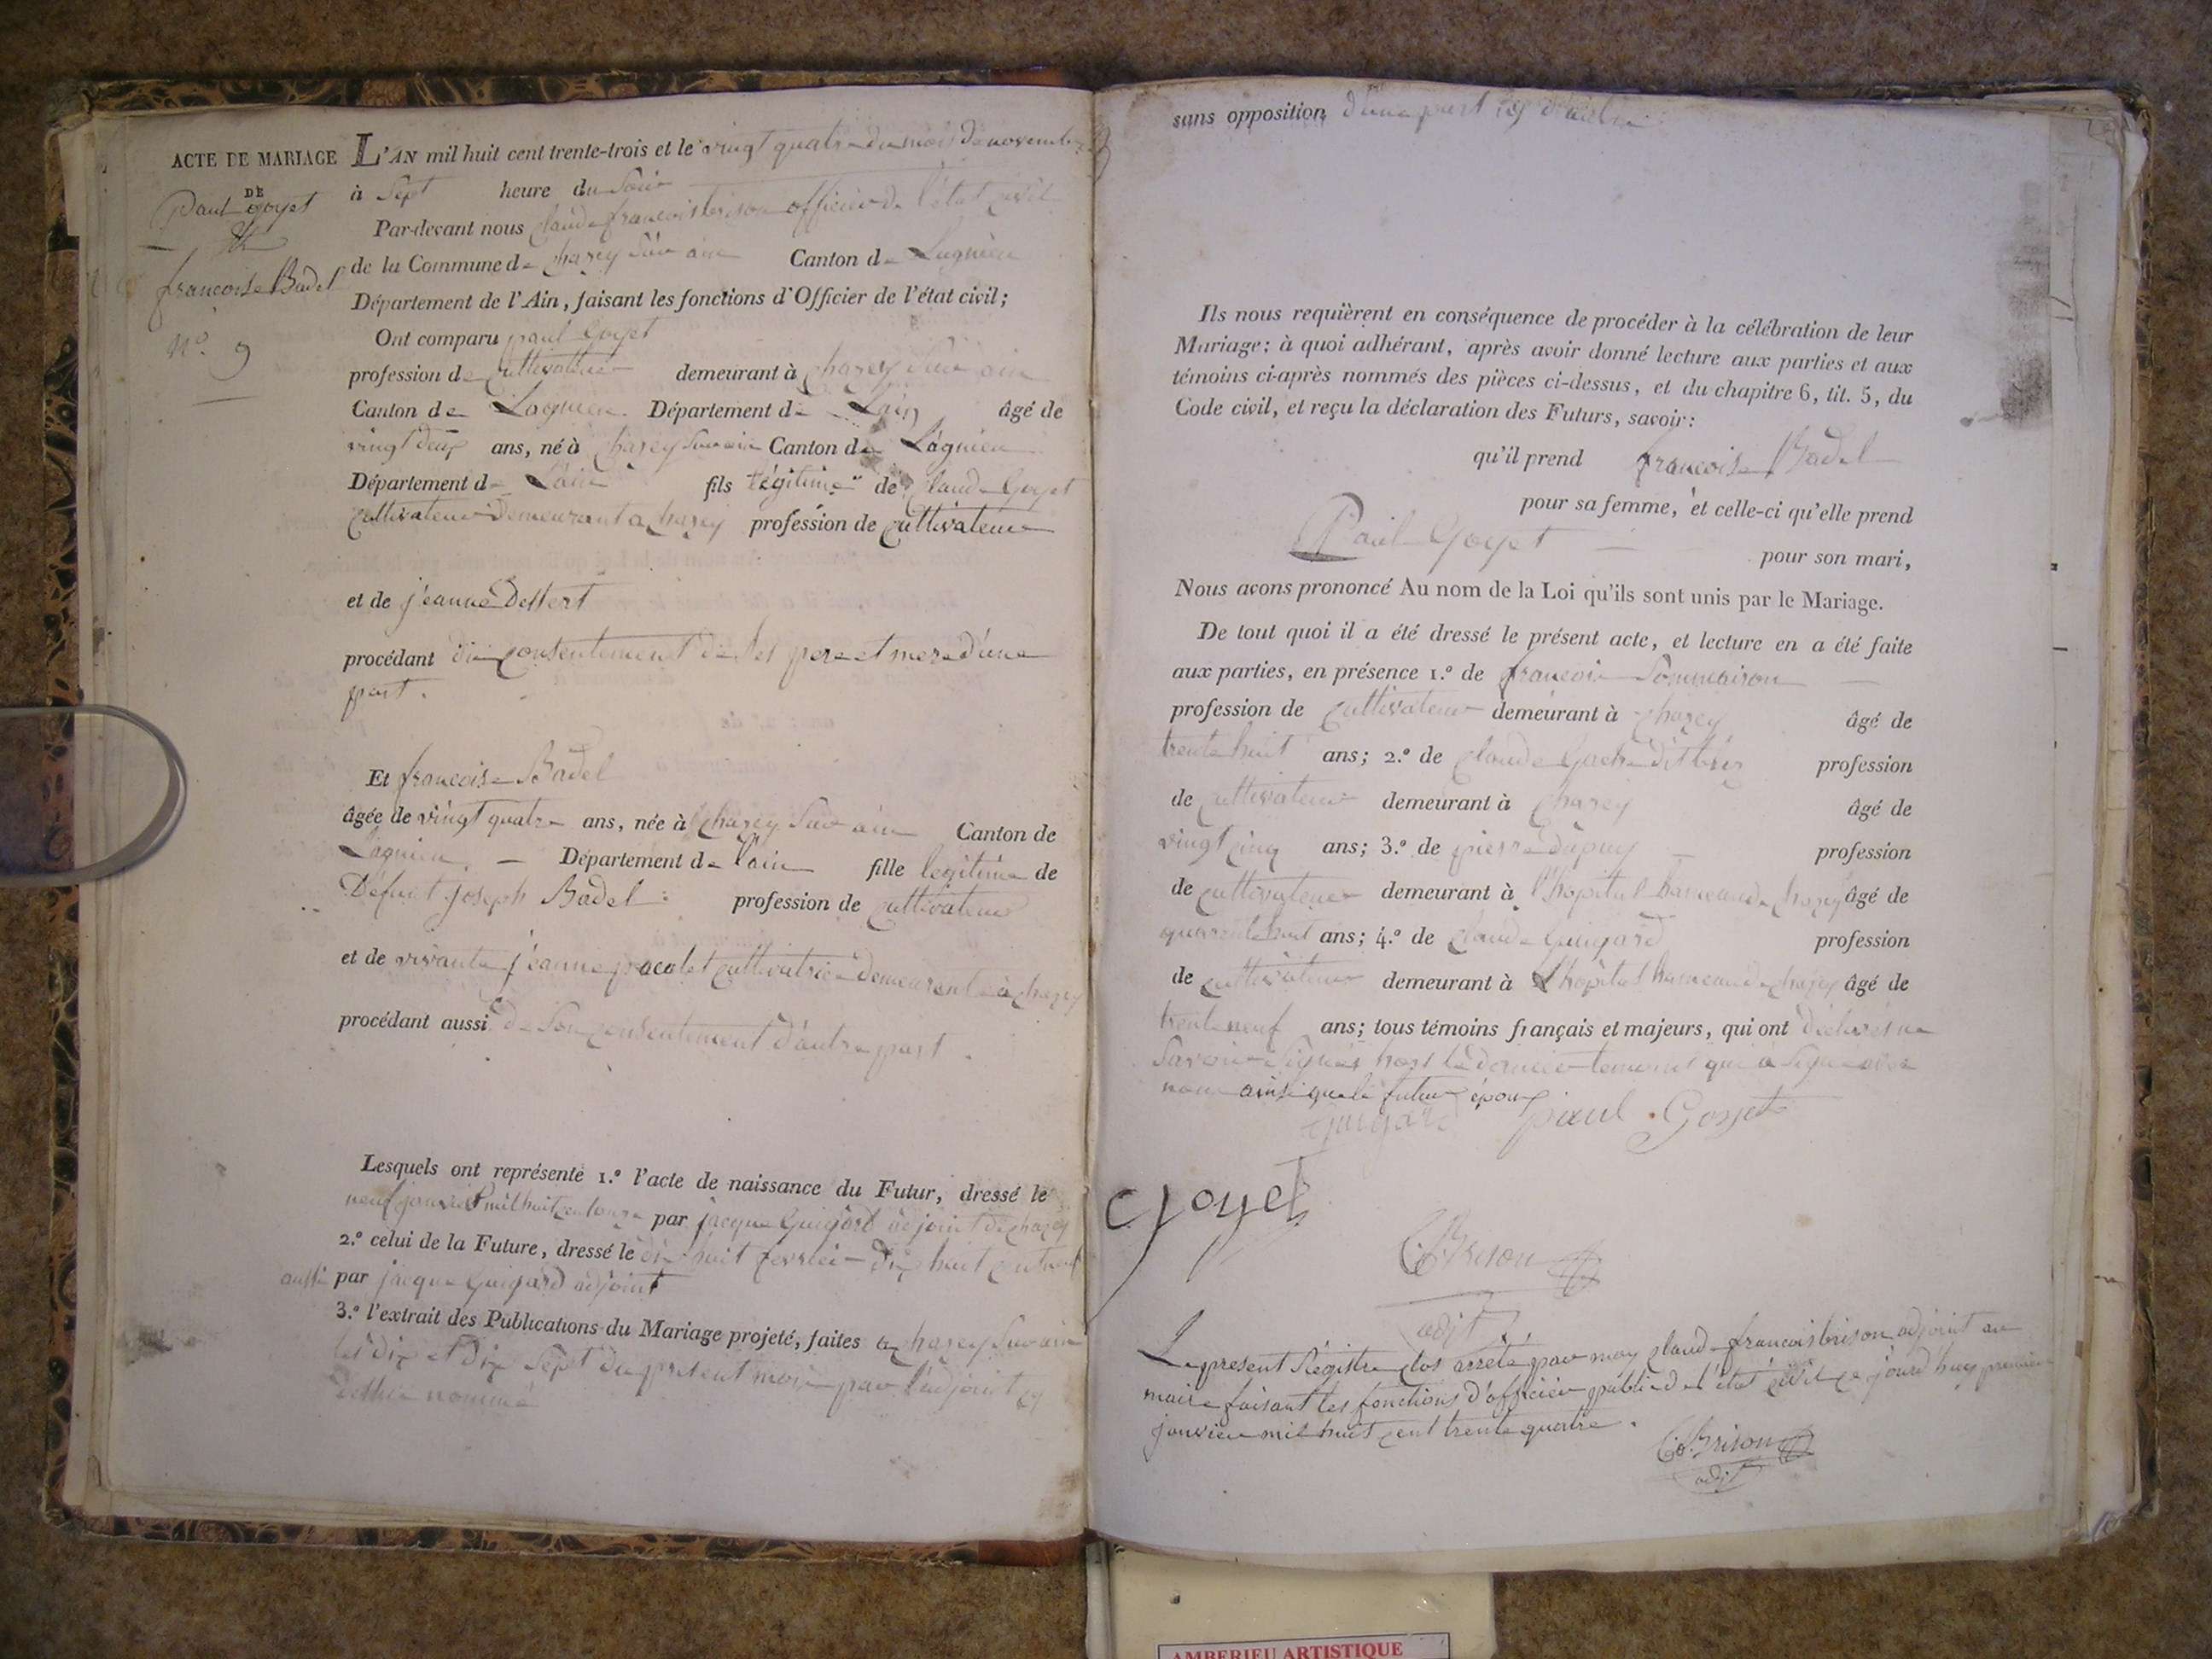 ACTE DE MARIAGE
DE
Paul goyet
&
francoise Badel
N.º 9
L'AN mil huit cent trente-trois et le vingt quatre du mois de novembre
à Sept heure du Soir
Par-devant nous claude francois brison officier de l'état civil
de la Commune de chazey Sur ain Canton de Lagnieu
Département de l'Ain, faisant les fonctions d'Officier de l'état civil;
Ont comparu paul Goyet
profession de cultivateur demeurant à chazey Sur ain
Canton de Lagnieu Département de Lain âgé de
vingt deux ans, né à chazey Sur ain Canton de Lagnieu
Département de Lain fils légitime de claude Goyet
cultivateur demeurant a chazey profession de cultivateur
et de jeanne Dessert
procédant du consentement de ses pere et mere d'une
part.
Et francoise Badel
âgée de vingt quatre ans, née à chazey Sur ain Canton de
Lagnieu Département de lain fille legitime de
Défunt joseph Badel profession de cultivateur
et de vivante jeanne pacalet cultivatrice demeurente à chazey
procédant aussi de Son consentement d'autre part.
Lesquels ont représenté 1.º l'acte de naissance du Futur, dressé le
neuf janvier mil huit cent onze par jacque Guigard adjoint de chazey
2.º celui de la Future, dressé le dix huit fevrier dix huit cent neuf
aussi par jacque Guigard adjoint
3.º l'extrait des Publications du Mariage projeté, faites a chazey Sur ain
les dix et dix Sept du present mois par l'adjoint cy
dessus nommé
sans opposition d'une part ny d'autre
Ils nous requièrent en conséquence de procéder à la célébration de leur
Mariage; à quoi adhérant, après avoir donné lecture aux parties et aux
témoins ci-après nommés des pièces ci-dessus, et du chapitre 6, tit. 5, du
Code civil, et reçu la déclaration des Futurs, savoir:
qu'il prend francoise Badel
pour sa femme, et celle-ci qu'elle prend
Paul Goyet pour son mari,
Nous avons prononcé Au nom de la Loi qu'ils sont unis par le Mariage.
De tout quoi il a été dressé le présent acte, et lecture en a été faite
aux parties, en présence 1.º de francois Sonnairon
profession de cultivateur demeurant à chazey âgé de
trente huit ans; 2.º de claude Gache dit profession
de cultivateur demeurant à chazey âgé de
vingt cinq ans; 3.º de pierre dupuy profession
de cultivateur demeurant à l'hopital hameau de chazey âgé de
quarente huit ans; 4.º de claude Guigard profession
de cultivateur demeurant à L'hôpital hameau de chazey âgé de
trente neuf ans; tous témoins français et majeurs, qui ont declarés ne
Savoir Signer hors le dernier temoins qui a Signe avec
nous ainsi que le futur époux
Guigard paul Goyet
goyet
C. Brison
adjt
Le present Régistre clos arrété par moy claude francois brison adjoint au
maire faisant les fonctions d'officier public de l'état civil ce jourd'huy premier
janvier mil huit cent trente quatre.
C. Brison
adjt
AMBERIEU ARTISTIQUE